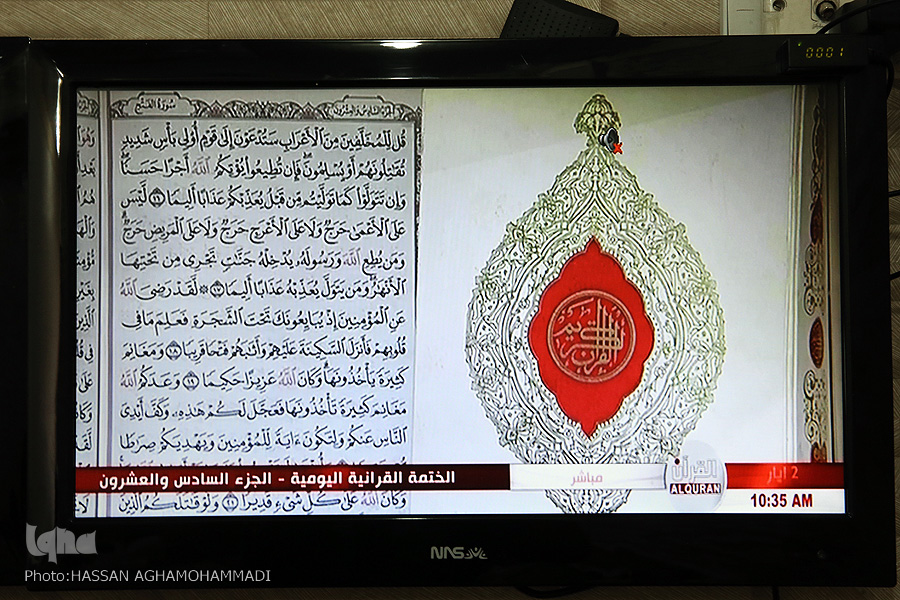 سُورَةُ الفَتْحِ
قُل لِّلْمُخَلَّفِينَ مِنَ ٱلْأَعْرَابِ سَتُدْعَوْنَ إِلَىٰ قَوْمٍ أُو۟لِى بَأْسٍ شَدِيدٍ
تُقَٰتِلُونَهُمْ أَوْ يُسْلِمُونَ ۖ فَإِن تُطِيعُوا۟ يُؤْتِكُمُ ٱللَّهُ أَجْرًا حَسَنًا ۖ
وَإِن تَتَوَلَّوْا۟ كَمَا تَوَلَّيْتُم مِّن قَبْلُ يُعَذِّبْكُمْ عَذَابًا أَلِيمًا ١٦ لَّيْسَ
عَلَى ٱلْأَعْمَىٰ حَرَجٌ وَلَا عَلَى ٱلْأَعْرَجِ حَرَجٌ وَلَا عَلَى ٱلْمَرِيضِ حَرَجٌ ۗ
وَمَن يُطِعِ ٱللَّهَ وَرَسُولَهُۥ يُدْخِلْهُ جَنَّٰتٍ تَجْرِى مِن تَحْتِهَا
ٱلْأَنْهَٰرُ ۖ وَمَن يَتَوَلَّ يُعَذِّبْهُ عَذَابًا أَلِيمًا ١٧ ۞ لَّقَدْ رَضِىَ ٱللَّهُ
عَنِ ٱلْمُؤْمِنِينَ إِذْ يُبَايِعُونَكَ تَحْتَ ٱلشَّجَرَةِ فَعَلِمَ مَا فِى
قُلُوبِهِمْ فَأَنزَلَ ٱلسَّكِينَةَ عَلَيْهِمْ وَأَثَٰبَهُمْ فَتْحًا قَرِيبًا ١٨ وَمَغَانِمَ
كَثِيرَةً يَأْخُذُونَهَا ۗ وَكَانَ ٱللَّهُ عَزِيزًا حَكِيمًا ١٩ وَعَدَكُمُ ٱللَّهُ
مَغَانِمَ كَثِيرَةً تَأْخُذُونَهَا فَعَجَّلَ لَكُمْ هَٰذِهِۦ وَكَفَّ أَيْدِىَ
ٱلنَّاسِ عَنكُمْ وَلِتَكُونَ ءَايَةً لِّلْمُؤْمِنِينَ وَيَهْدِيَكُمْ صِرَٰطًا
وَكَانَ ٱللَّهُ عَلَىٰ كُلِّ شَىْءٍ قَدِيرًا ٢١ وَلَوْ قَٰتَلَكُمُ ٱلَّذِينَ
القرآن الكريم
2 أيار
القرآن
ALQURAN
مباشر
الختمة القرانية اليومية - الجزء السادس والعشرون
10:35 AM
0001
NNS
iqna
Photo:HASSAN AGHAMOHAMMADI